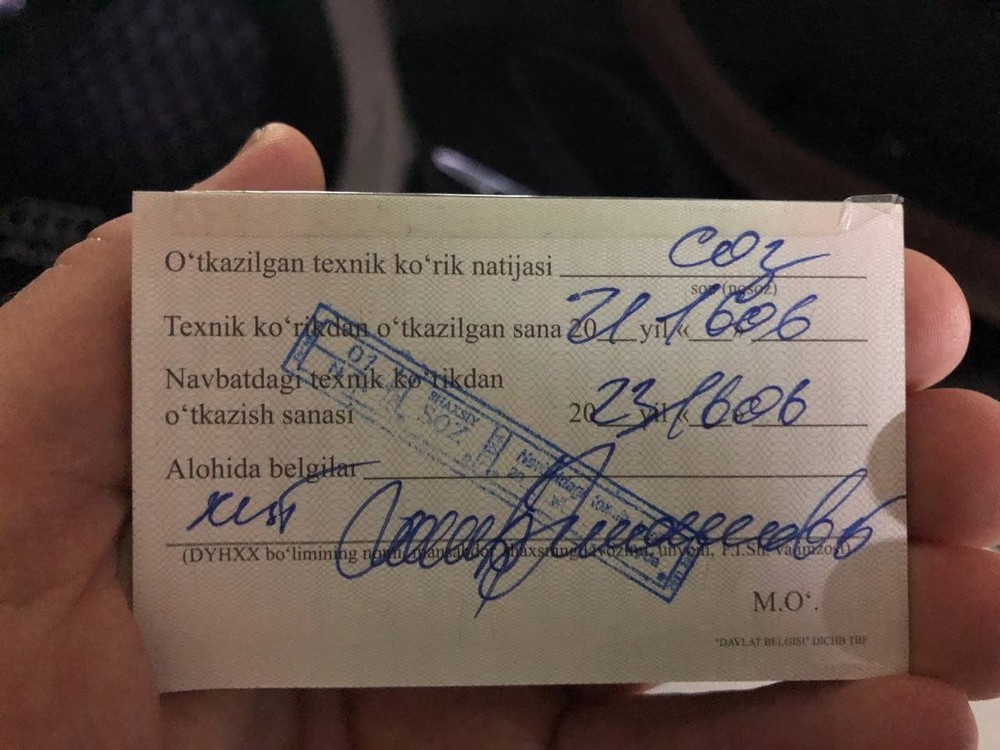 O‘tkazilgan texnik ko‘rik natijasi соз
soz (nosoz)
Texnik ko‘rikdan o‘tkazilgan sana 2021 yil «16» 06
Navbatdagi texnik ko‘rikdan
o‘tkazish sanasi 2023 yil «16» 06
Alohida belgilar
01
SHAXSIY
SOZ
(DYHXX bo‘limining nomi, mansabdor shaxsning lavozimi, unvoni, F.I.Sh. va imzosi)
M.O‘.
"DAVLAT BELGISI" DICHB TBF